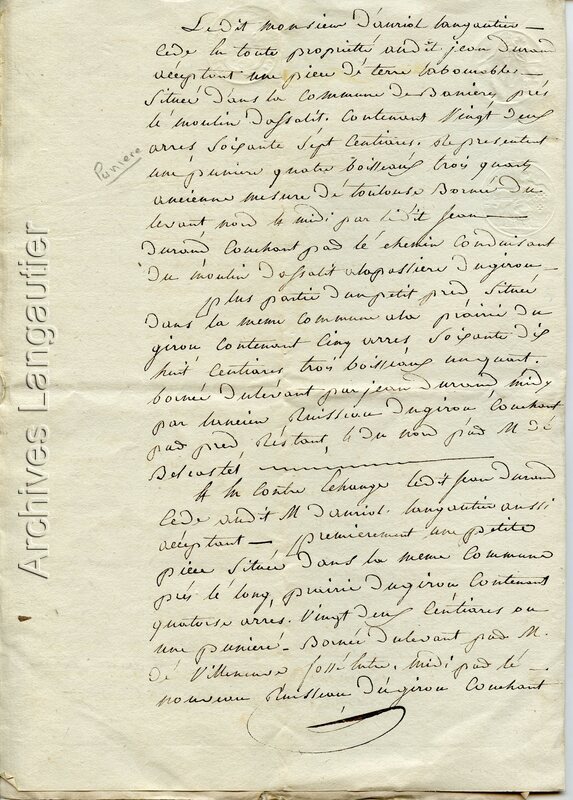 Le dit monsieur Dauriol langautier
Cede En toute propriétté audit jean Durand
acéptant une piéce dé terre labourable
Situéé dans la Commune de Baniere, prés
lé moulin dassalit. Contenant Vingt deux
arres Soixante Sépt Centiares. répresentant
une puniere quatre boisseaux trois quarts
ancienne mesure dé toulouse Borné du
levant nord & midi par ledit Jean
Durand Couchant pad lé chemin Conduisant
du moulin dassalit alapassiere dugirou
plus partie dunpetit pred Situéé
dans la meme commune ala prairie du
girou Contenant Cinq arres Soixante dix
huit Centiares trois boisseaux unquart.
bornée dulevant par jean durand, midy
par lancien Ruisseau dugirou Couchant
pad pred Réstant, & du nord pad M. dé
Belcastél
& En Contre Echange ledit Jean Durand
Cede audit M Dauriol langautier aussi
acéptant premierement une petite
piéce Situéé dans la meme Commune
prés lé long, prairie dugirou Contenant
quatorze arres. Vingt deux Centiares ou
une puniere. Bornée dulevant pad M.
dé Villeneuve, midi pad lé
nouveau Ruisseau dugirou Couchant
Puniere
Archives Langautier